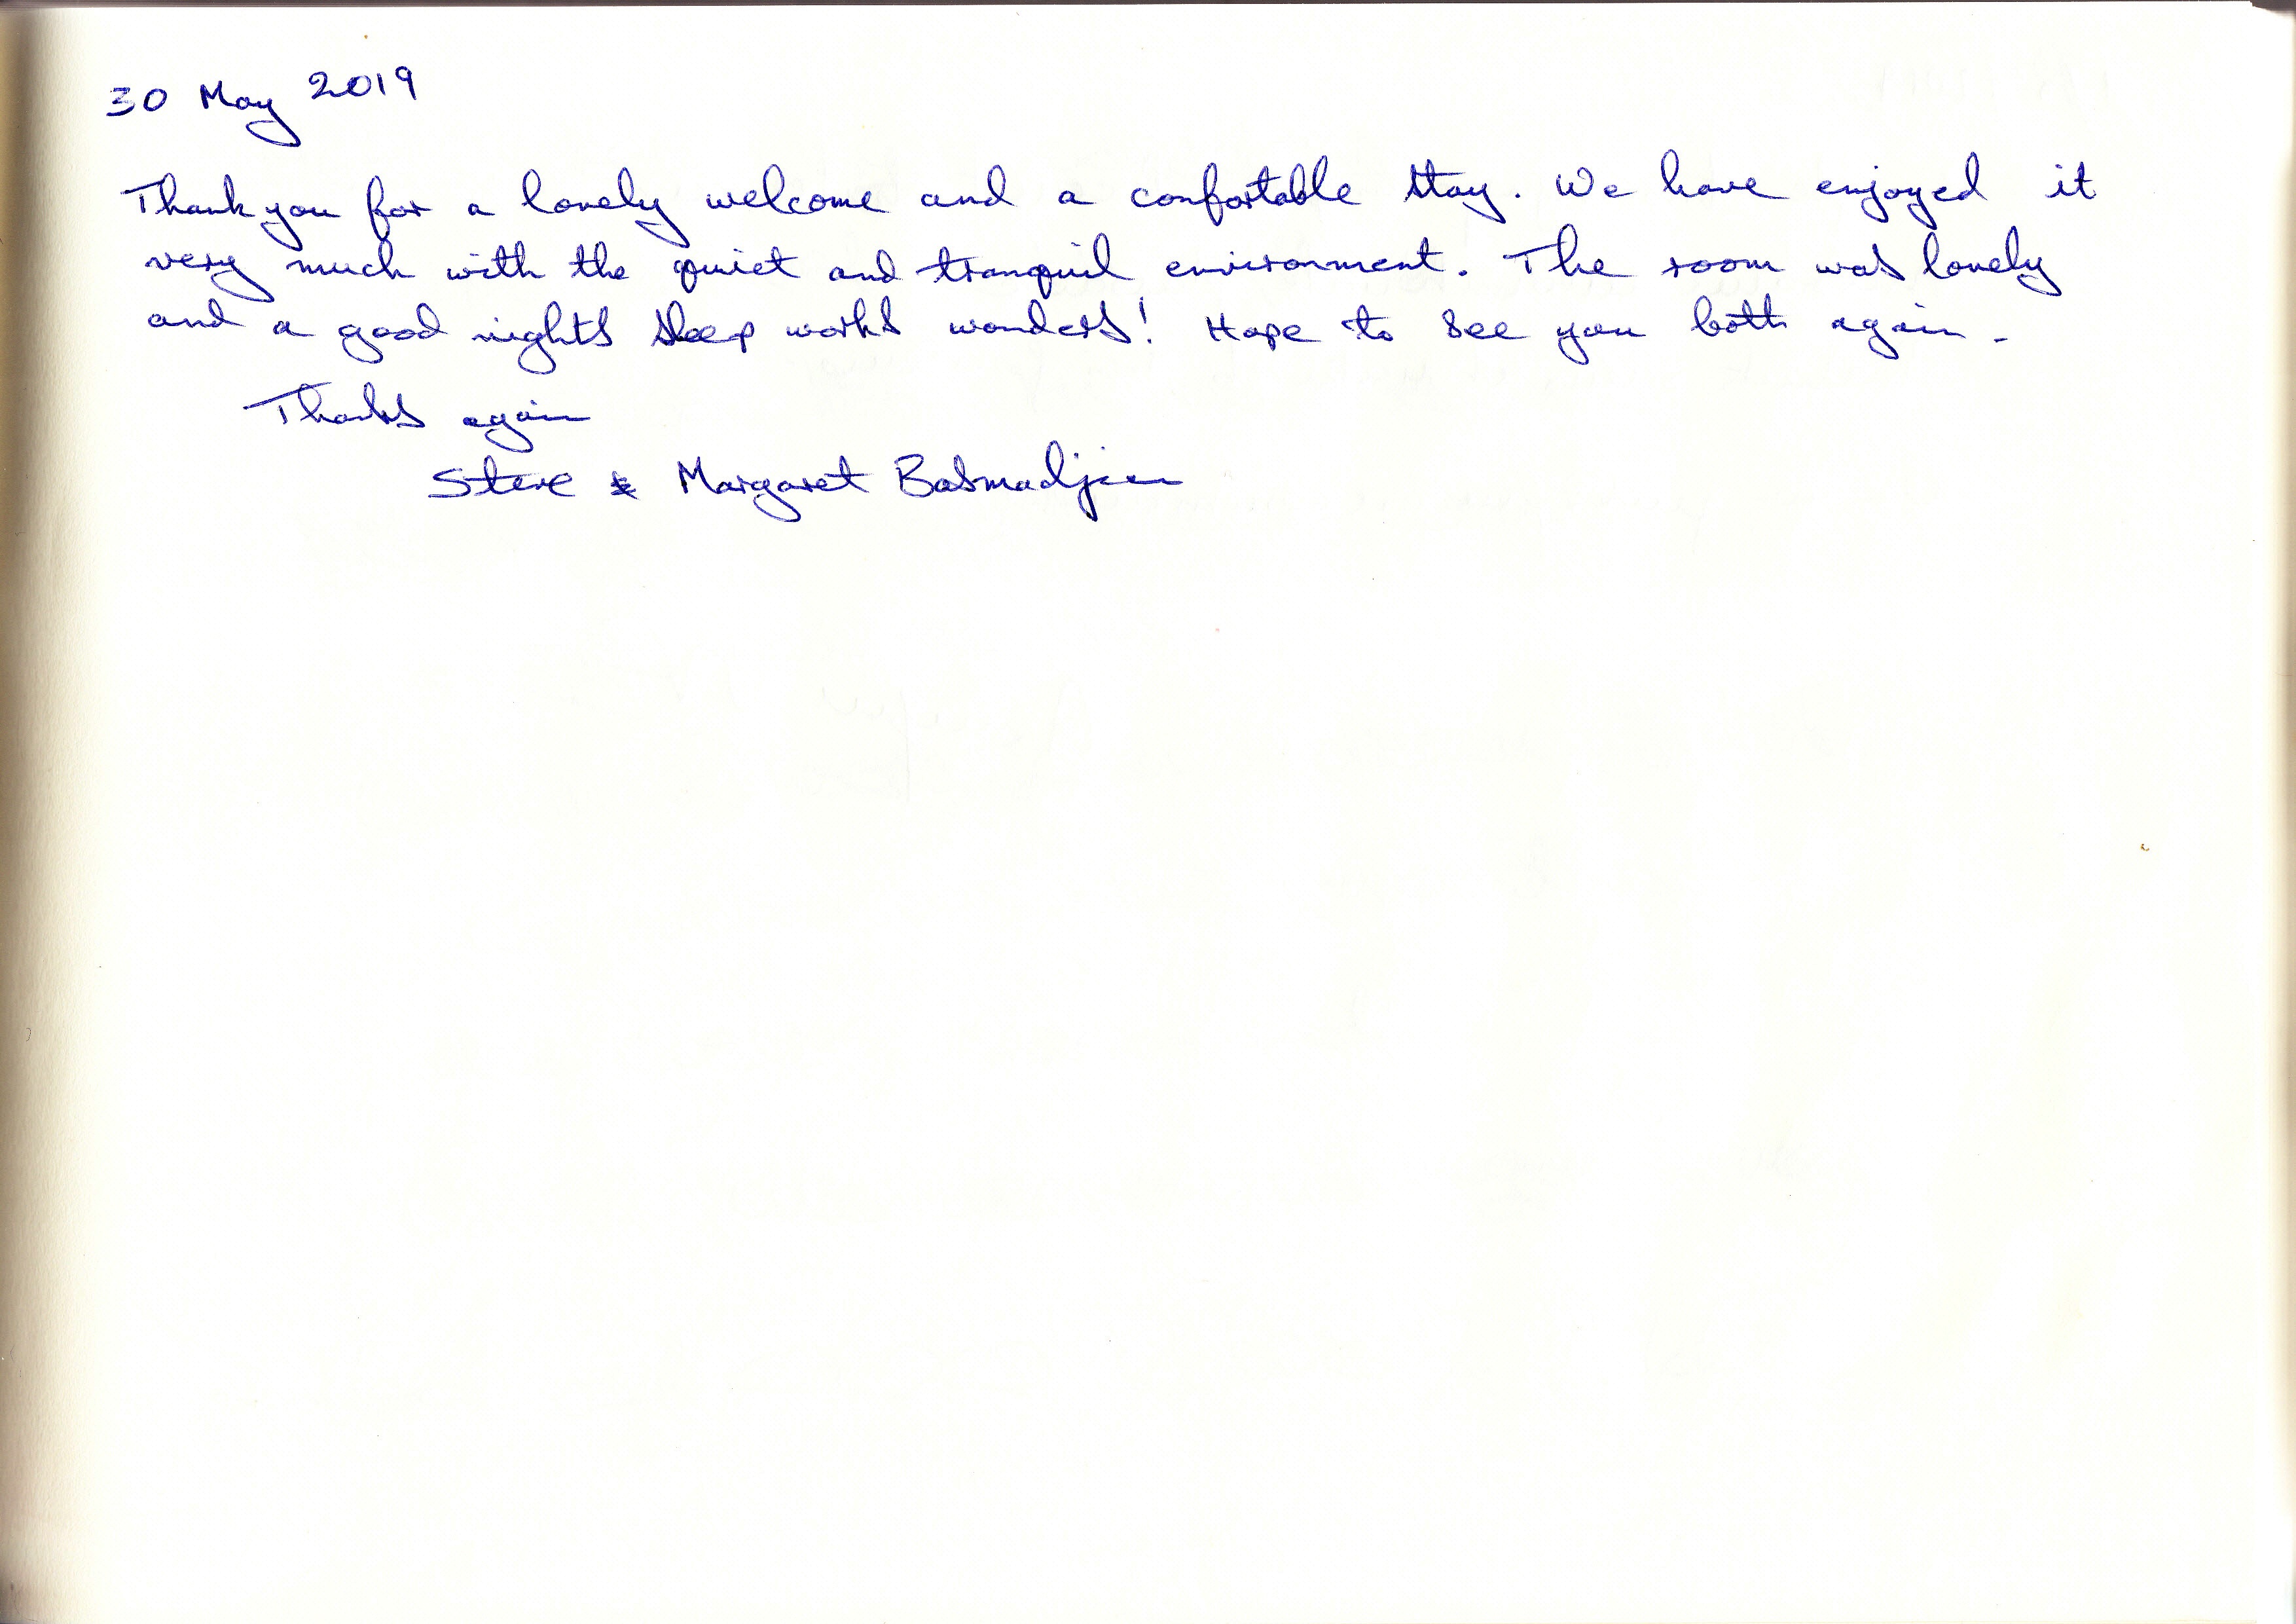 30 May 2019
Thank you for a lovely welcome and a confortable stay. We have enjoyed it
very much with the quiet and tranquil environment. The room was lovely
and a good nights sleep works wonders! Hope to see you both again.
Thanks again
Steve & Margaret Basmadjian